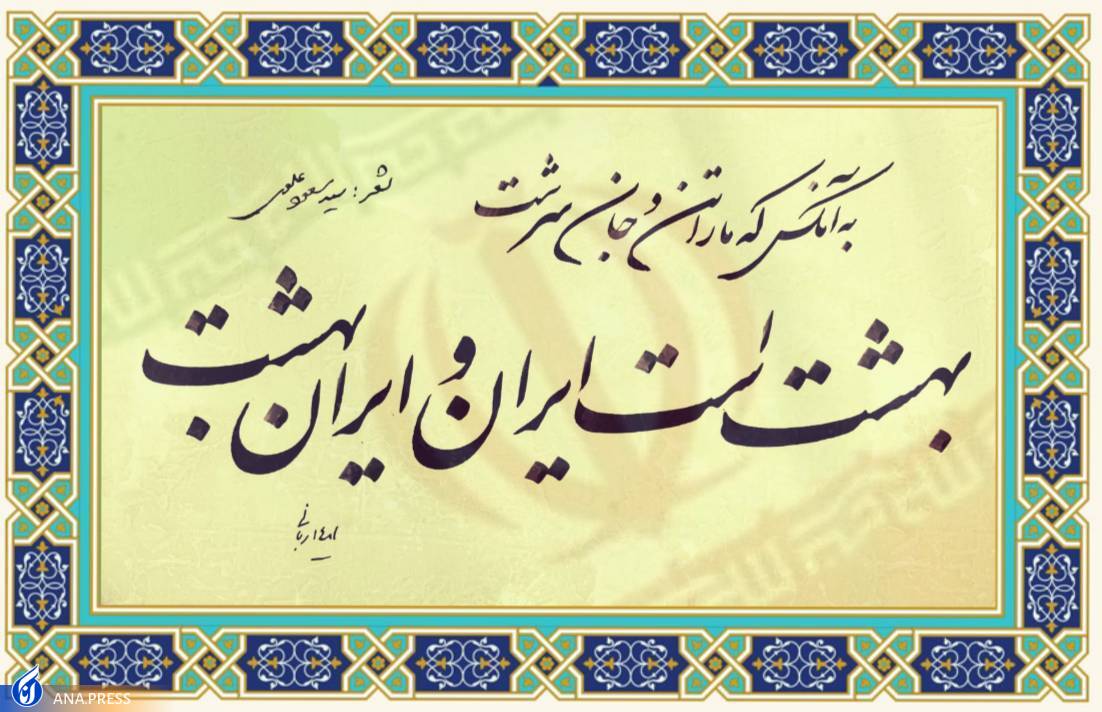 به آنکس که ما را تن و جان سرشت
شعر: سید مسعود علوی
بهشت است ایران و ایران بهشت
ANA.PRESS